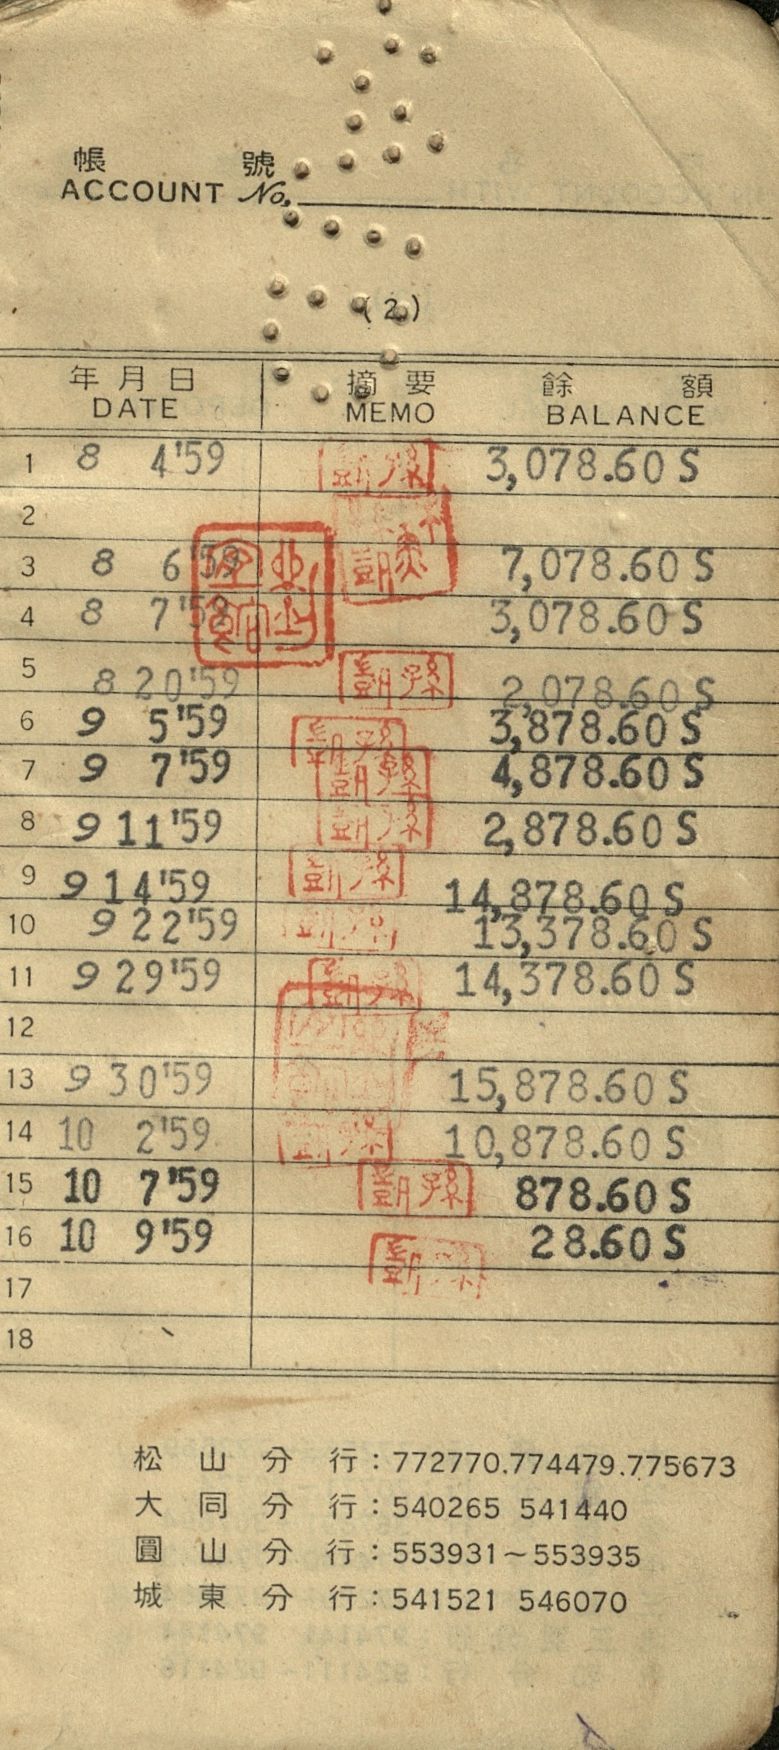 帳 號
ACCOUNT No.
(2)
年月日 摘要 餘額
DATE MEMO BALANCE
1 8 4'59 3,078.60 S
2
3 8 6'59 7,078.60 S
4 8 7'59 3,078.60 S
5 8 20'59 2,078.60 S
6 9 5'59 3,878.60 S
7 9 7'59 4,878.60 S
8 9 11'59 2,878.60 S
9 9 14'59 14,878.60 S
10 9 22'59 13,378.60 S
11 9 29'59 14,378.60 S
12
13 9 30'59 15,878.60 S
14 10 2'59 10,878.60 S
15 10 7'59 878.60 S
16 10 9'59 28.60 S
17
18
松山分行:772770.774479.775673
大同分行:540265 541440
圓山分行:553931~553935
城東分行:541521 546070